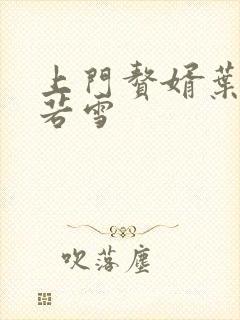 上門贅婿葉
若雪
吹落塵